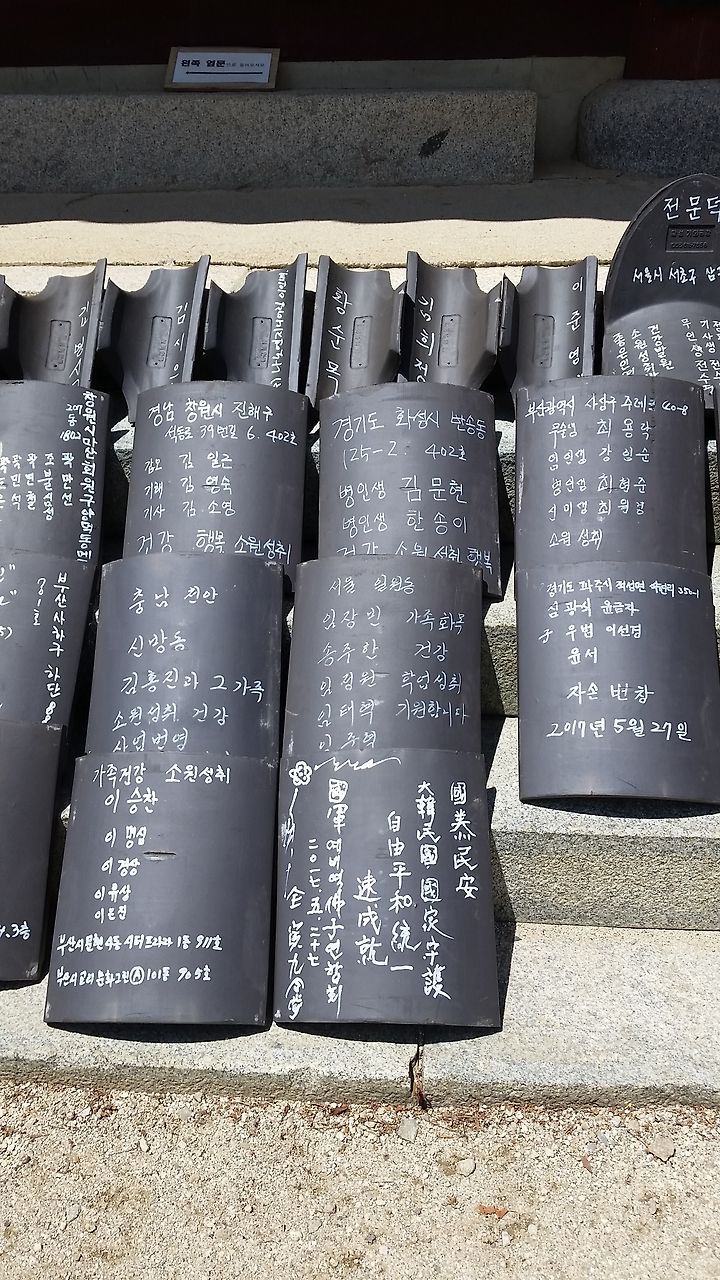 왼쪽 옆문으로 들어오세요
전문덕
서울시 서초구
건강
소원성취
이준영
황순목
임희정
창원시 마산회원구 양덕동
207동
1802
곽만선
경남 창원시 진해구
석동로 39번길 6. 402호
김일근
김영숙
기사 김소영
건강 행복 소원성취
경기도 화성시 반송동
125-2. 402호
병인생 김문현
병인생 한송이
건강 소원성취 행복
부산광역시 사상구 주례로 60-8
무술생 최용락
임인생 강인순
병인생 최현준
신미생 최원경
소원성취
부산사하구 하단
충남 천안
신방동
김홍진과 그 가족
소원성취 건강
사업번영
서울 일원동
임장빈 가족화목
송주한 건강
임정원 학업성취
임태혁 기원합니다
경기도 파주시 적성면
심광식 윤금자
子 우범 이선경
윤서
자손 번창
2017년 5월 27일
가족건강 소원성취
이승찬
이명심
이경상
이유상
이은진
101동 905호
國泰民安
大韓民國 國家守護
自由平和統一
速成就
國軍 예비역 佛子연합회
二〇一七. 五. 二十七
3층